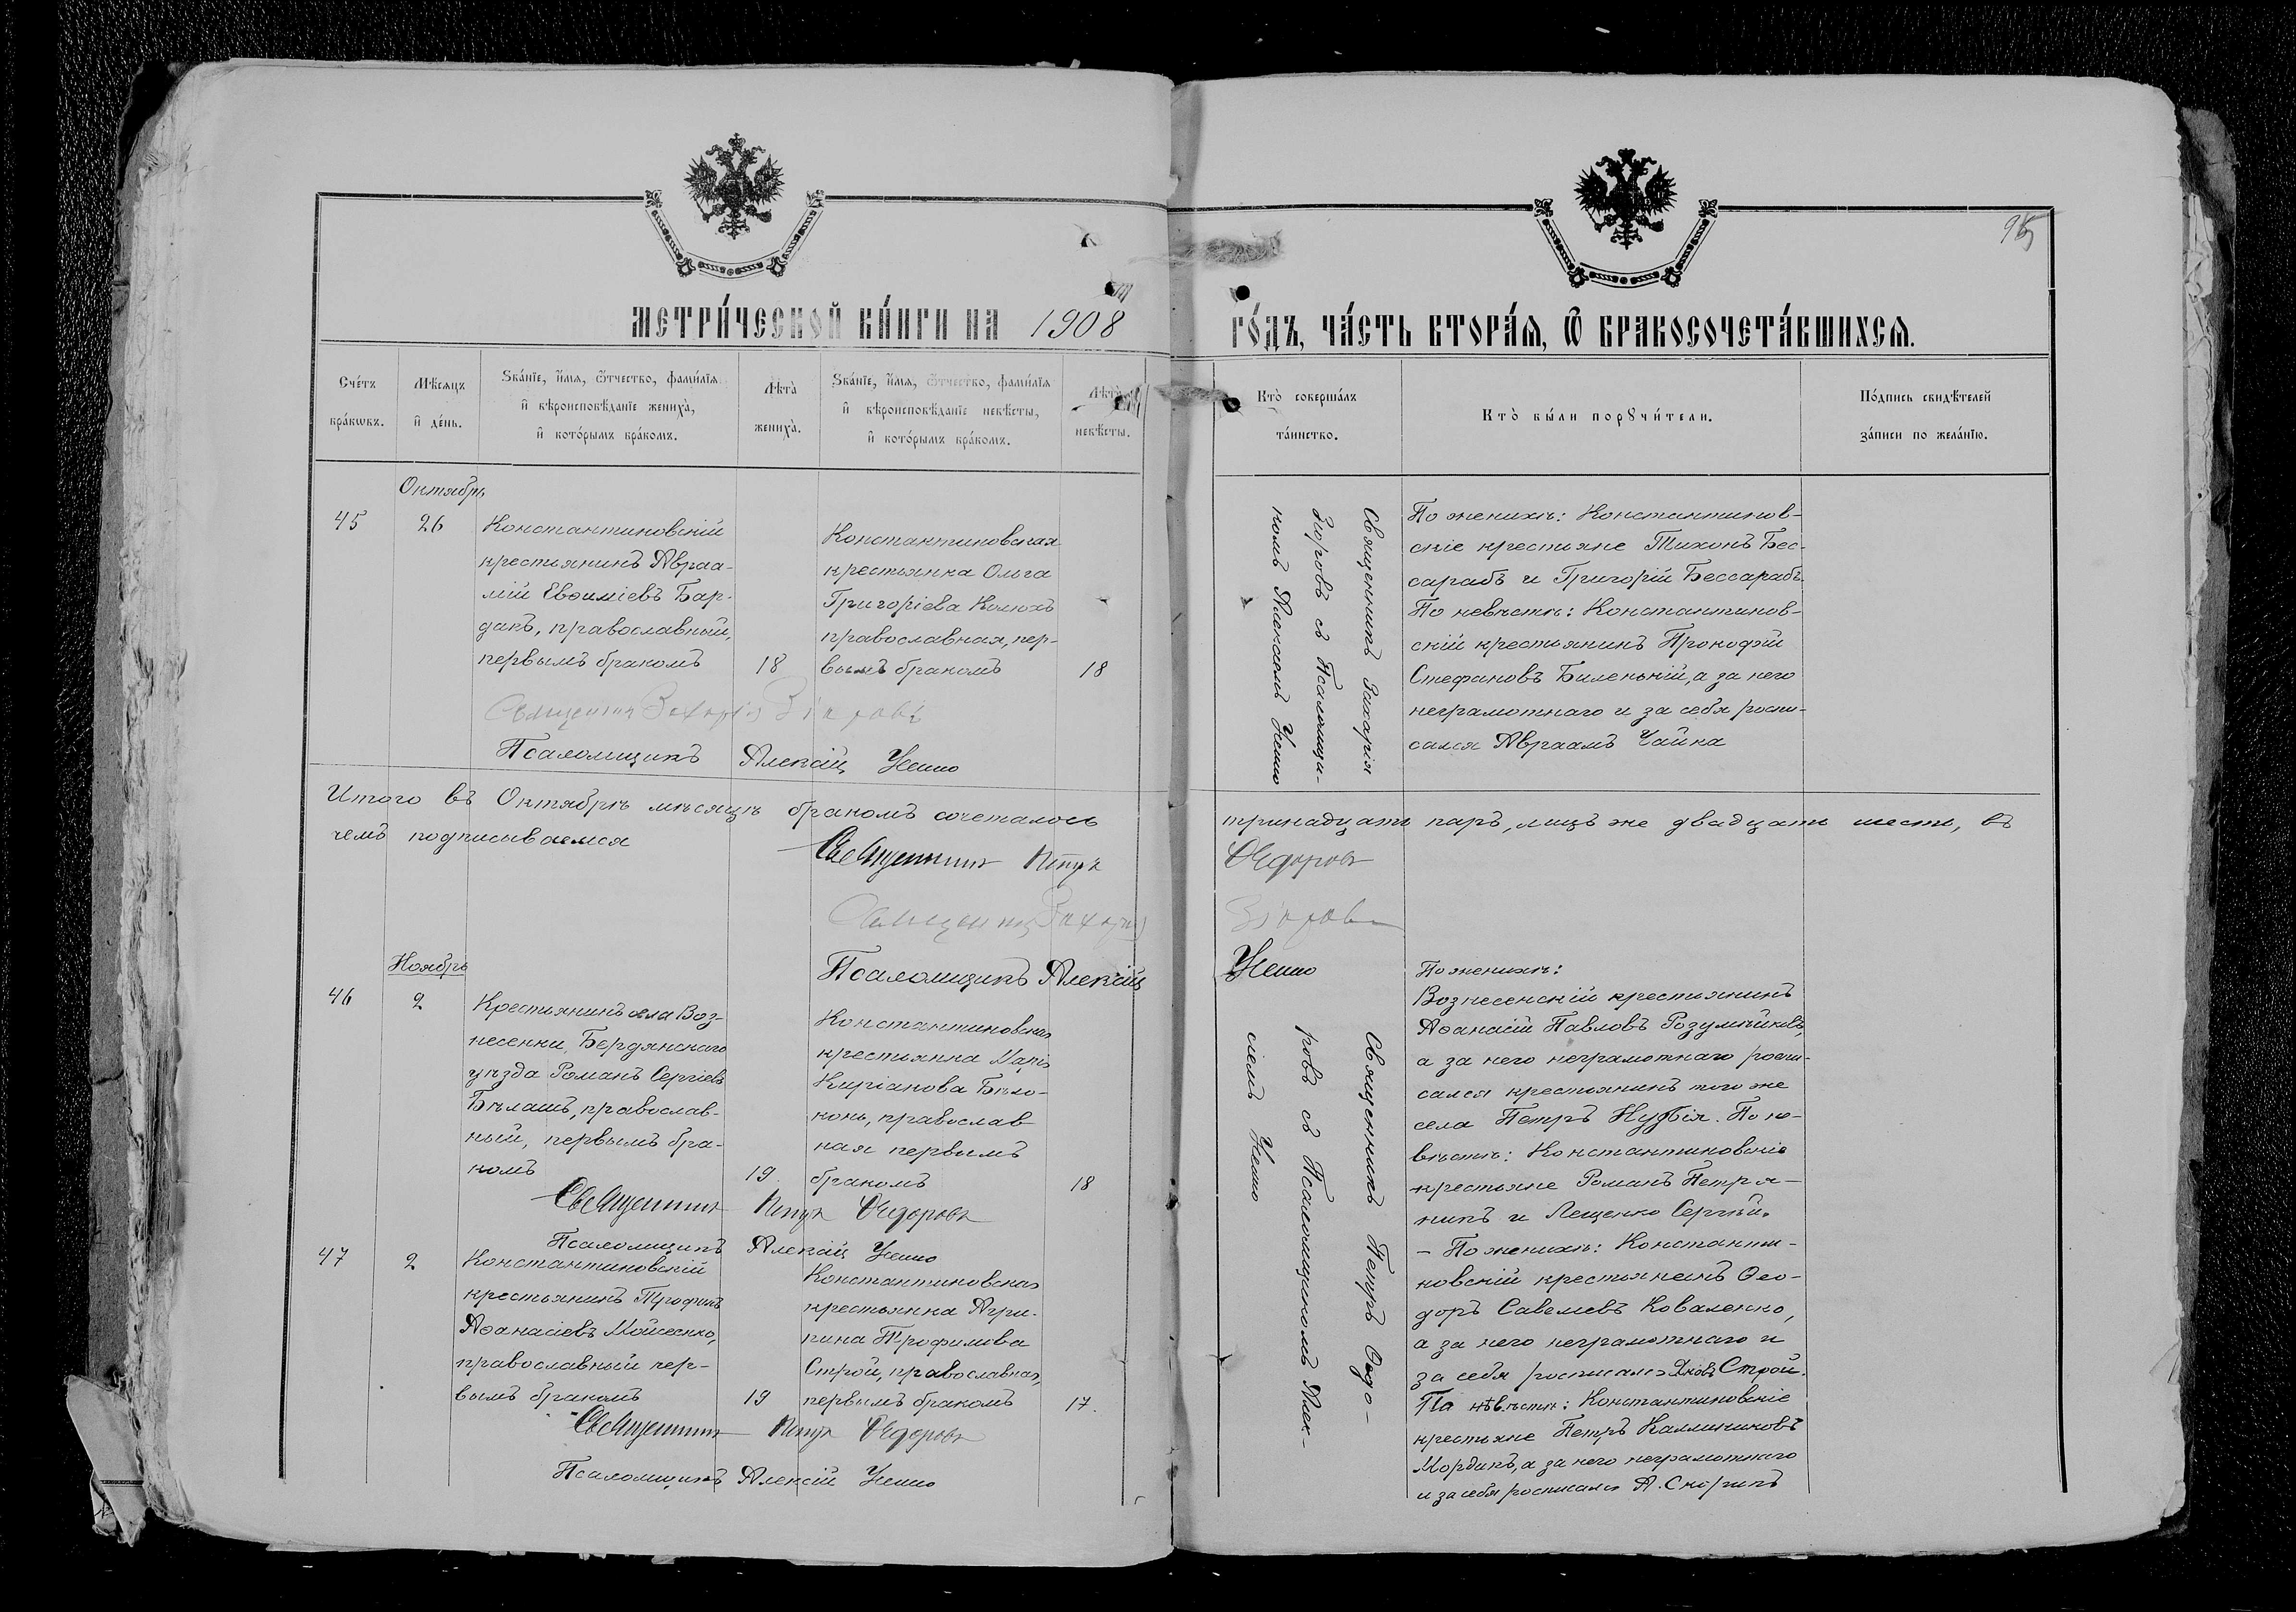 95
МЕТРИ́ЧЕСКОЙ КНИ́ГИ НА 1908
ГО́ДЪ, ЧА́СТЬ ВТОРА́Ѧ, Ѿ БРАКОСОЧЕТА́ВШИХСѦ.
Сче́тъ
бра́кѡвъ.
Мѣ́сѧцъ
и҆ де́нь.
Ѕва́нїе, и҆́мѧ, ѻ҆́тчество, фами́лїѧ
и҆ вѣроисповѣ́данїе жениха̀,
и҆ кото́рымъ бра́комъ.
Лѣ́та
жениха̀.
Ѕва́нїе, и҆́мѧ, ѻ҆́тчество, фами́лїѧ
и҆ вѣроисповѣ́данїе невѣ́сты,
и҆ кото́рымъ бра́комъ.
Лѣ́та
невѣ́сты.
Кто̀ соверша́лъ
та́инство.
Кто̀ бы́ли порꙋчи́тели.
По́дпись свидѣ́телей
за́писи по жела́нїю.
Октябрь
45
26
Константиновскій
крестьянинъ Авраа-
мій Евѳиміевъ Бар-
дакъ, православный,
первымъ бракомъ
18
Константиновская
крестьянка Ольга
Григоріева
православная, пер-
вымъ бракомъ
18
Священникъ Захарія
с Псаломщи-
комъ Алексіемъ
По женихѣ: Константинов-
скіе крестьяне Тихонъ Бес-
сарабъ и Григорій Бессарабъ.
По невѣстѣ: Константинов-
скій крестьянинъ Прокофій
Стефановъ Биленькій, а за него
неграмотнаго и за себя роспи-
сался Авраамъ Чайка
Священникъ Захарія
Псаломщикъ Алексій
Итого въ Октябрѣ мѣсяцѣ бракомъ сочеталось тринадцать паръ, лицъ же двадцать шесть, въ
чемъ подписываемся
Священникъ Петръ Ѳедоровъ
Священникъ Захарія
Псаломщикъ Алексій
Ноябрь
46
2
Крестьянинъ села Воз-
несенки, Бердянскаго
уѣзда Романъ Сергіевъ
Бѣлашъ, православ-
ный, первымъ бра-
комъ
19
Константиновская
крестьянка Марія
Кипріанова Бѣло-
конь, православ
ная первымъ
бракомъ
18
Священникъ Петръ Ѳедо-
ровъ съ Псаломщикомъ Алек-
сіемъ
По женихѣ:
Вознесенскій крестьянинъ
Аѳанасій Павловъ Розумѣйковъ,
а за него неграмотнаго роспи-
сался крестьянинъ того же
села Петръ. По не-
вѣстѣ: Константиновскіе
крестьяне Романъ Петря-
никъ и Лещенко Сергѣй.
Священникъ Петръ Ѳедоровъ
Псаломщикъ Алексій
47
2
Константиновскій
крестьянинъ Трофимъ
Аѳанасіевъ Мойсеенко,
православный пер-
вымъ бракомъ
19
Константиновская
крестьянка Агри-
пина Трофимова
Строй, православная,
первымъ бракомъ
17.
- По женихѣ: Константи-
новскій крестьянинъ Ѳео-
доръ Савельевъ Коваленко,
а за него неграмотнаго и
за себя росписался Яковъ Строй.
По невѣстѣ: Константиновскіе
крестьяне Петръ Каллиниковъ
Мордикъ, а за него неграмотнаго
и за себя росписался А. Скорикъ
Священникъ Петръ Ѳедоровъ
Псаломщикъ Алексій